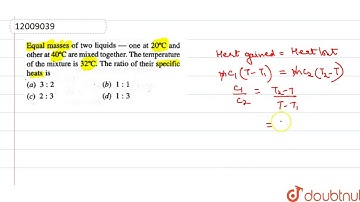 12009039
Equal masses of two liquids — one at 20°C and
other at 40°C are mixed together. The temperature
of the mixture is 32°C. The ratio of their specific
heats is
(a) 3 : 2 (b) 1 : 1
(c) 2 : 3 (d) 1 : 3
Heat gained = Heat lost
mC1(T-T1) = mC2(T2-T)
C1/C2 = T2-T/T-T1
=
doubtnut